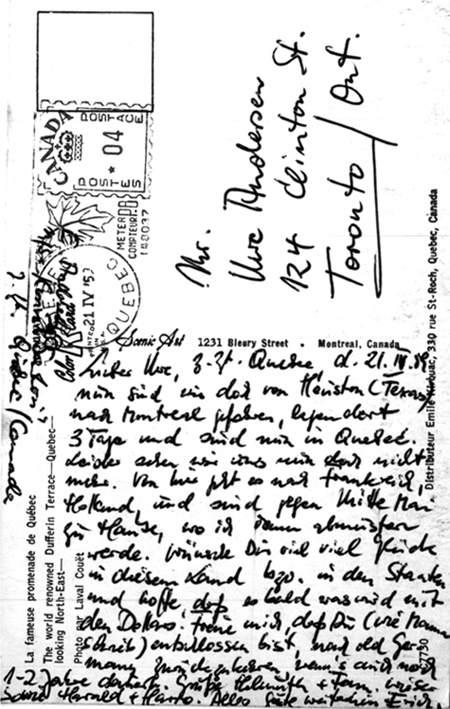 CANADA
POSTAGE
04
POSTES
METER
COMPTEUR
148037
QUEBEC
21 IV
QUEBEC
Mr.
Uwe Andersen
124 Clinton St.
Toronto / Ont.
Quebec / Canada
La fameuse promenade de Québec
The world renowned Dufferin Terrace—Quebec—
looking North-East—
Photo par Laval Couët
Scenic Art 1231 Bleury Street • Montreal, Canada
Distributeur Emile Kirouac, 330 rue St-Roch, Quebec, Canada
Lieber Uwe, z.Zt. Quebec d. 21. IV.
nun sind wir doch von Houston (Texas)
nach Montreal gefahren, lagen dort
3 Tage und sind nun in Quebec.
Leider sehen wir uns nun doch nicht
mehr. Von hier geht es nach Frankreich,
Holland, und sind gegen Mitte Mai
zu Hause, wo ich dann abmustern
werde. Wünsche Dir viel viel Glück
in diesem Land bzw. in den Staaten
und hoffe, daß es bald was wird mit
den Dollars. Freue mich, daß Du (wie Mama
schreib) entschlossen bist, nach old Ger-
many zurückzukehren, wenn's auch noch
1-2 Jahre dauert. Grüße Helmuth + Fam.
sowie Harald + Alles Gute weiterhin Erich.